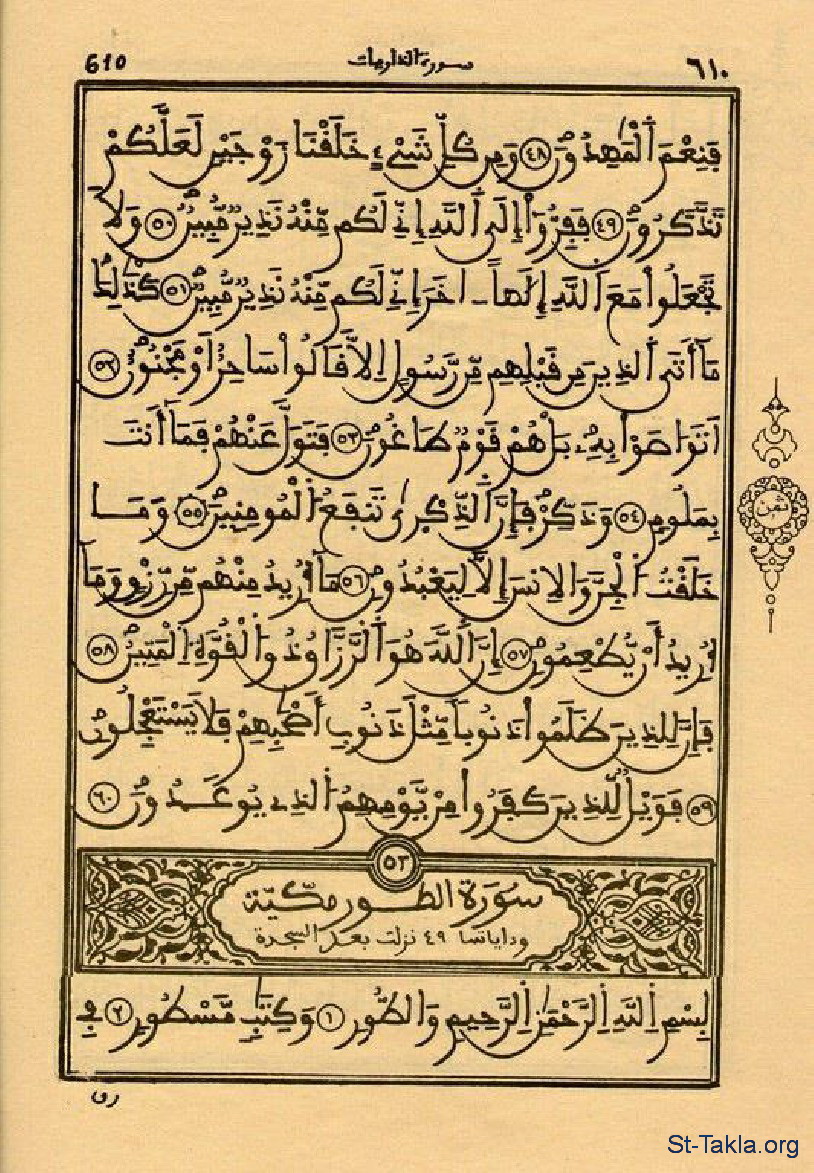 610 سورة الذاريات ٦١٠
فَنِعْمَ اَ۬لْمَٰهِدُونَ ٤٨ وَمِن كُلِّ شَےْءٍ خَلَقْنَا زَوْجَيْنِ لَعَلَّكُمْ
تَذَّكَّرُونَ ٤٩ فَفِرُّوٓاْ إِلَى اَ۬للَّهِ إِنِّے لَكُم مِّنْهُ نَذِيرٌ مُّبِينٌ ٥٠ وَلَا
تَجْعَلُواْ مَعَ اَ۬للَّهِ إِلَٰهاً ـ اخَرَ إِنِّے لَكُم مِّنْهُ نَذِيرٌ مُّبِينٌ ٥١ كَذَٰلِكَ
مَآ أَتَى اَ۬لذِينَ مِن قَبْلِهِم مِّن رَّسُولٍ اِلَّا قَالُواْ سَاحِرٌ اَوْ مَجْنُونٌ ٥٢
اَتَوَاصَوْاْ بِهِۦ بَلْ هُمْ قَوْمٌ طَاغُونَ ٥٣ فَتَوَلَّ عَنْهُمْ فَمَآ أَنتَ
بِمَلُومٍ ٥٤ وَذَكِّرْ فَإِنَّ اَ۬لذِّكْر۪ىٰ تَنفَعُ اُ۬لْمُومِنِينَ ٥٥ وَمَا
خَلَقْتُ اُ۬لْجِنَّ وَالِانسَ إِلَّا لِيَعْبُدُونِ ٥٦ مَآ أُرِيدُ مِنْهُم مِّن رِّزْقٍ وَمَآ
أُرِيدُ أَنْ يُّطْعِمُونِ ٥٧ إِنَّ اَ۬للَّهَ هُوَ اَ۬لرَّزَّاقُ ذُو اُ۬لْقُوَّةِ اِ۬لْمَتِينُ ٥٨
فَإِنَّ لِلذِينَ ظَلَمُواْ ذَنُوباً مِّثْلَ ذَنُوبِ أَصْحَٰبِهِمْ فَلَا يَسْتَعْجِلُونِ
٥٩ فَوَيْلٌ لِّلذِينَ كَفَرُواْ مِنْ يَّوْمِهِمُ اُ۬لذِے يُوعَدُونَ ٦٠
ثمن
٥٢
سُورَةُ الطُّورِ مَكِّيَّة
وءاياتها ٤٩ نزلت بعد السجدة
بِسْمِ اِ۬للَّهِ اِ۬لرَّحْمَٰنِ اِ۬لرَّحِيمِ وَالطُّورِ ١ وَكِتَٰبٍ مَّسْطُورٍ ٢ فِے
رق
St-Takla.org